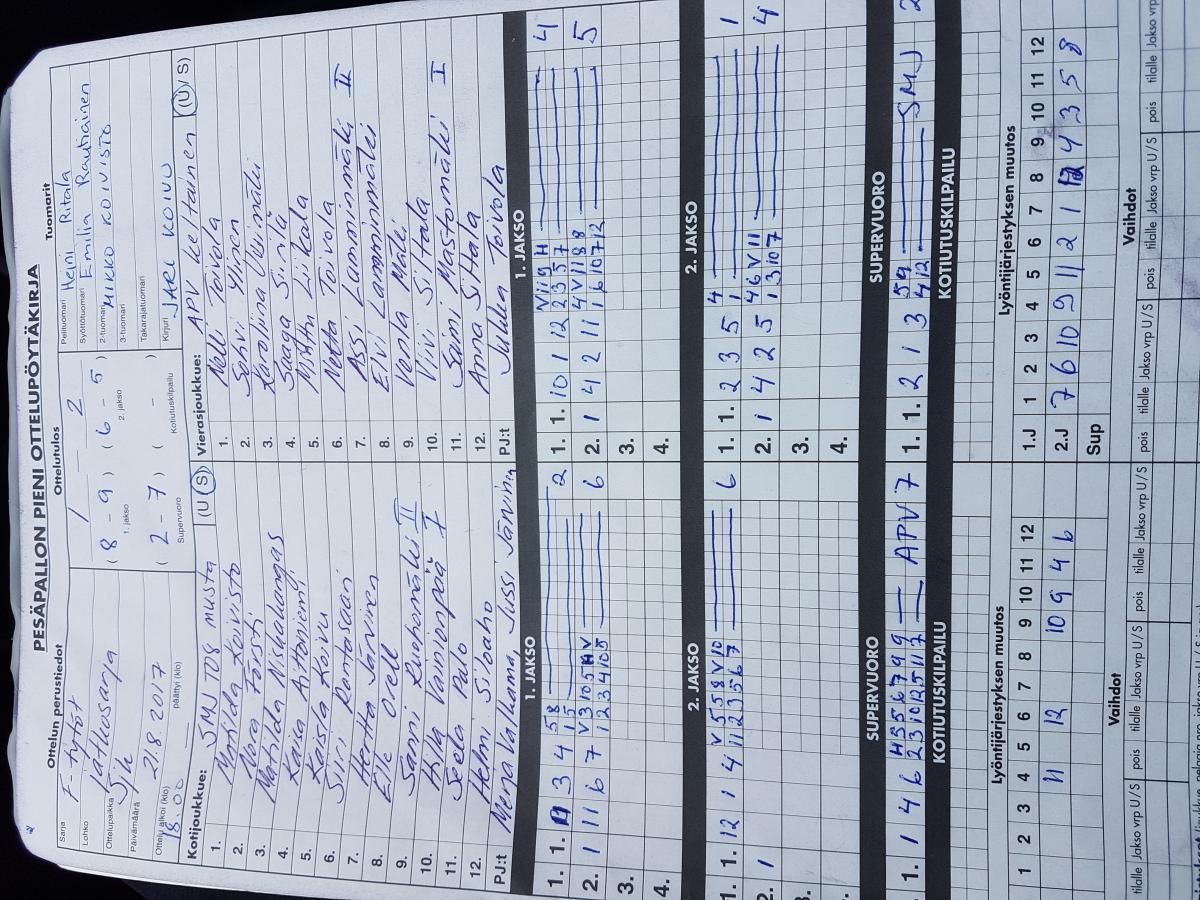 PESÄPALLON PIENI OTTELUPÖYTÄKIRJA
Ottelun perustiedot
Ottelutulos
Tuomarit
Sarja F-tytöt
Lohko Jatkosarja
Ottelupaikka
Päivämäärä 21.8.2017
Ottelu alkoi (klo) 18.00 päättyi (klo)
1 - 2
(8 - 9) (6 - 5)
1. jakso 2. jakso
(2 - 7) ( - )
Supervuoro Kotiutuskilpailu
Pelituomari Heini Ritala
Syöttötuomari Emilia Rauhiainen
2-tuomari MIKKO KOIVISTO
3-tuomari
Takarajatuomari
Kirjuri JARI KOIVU
Kotijoukkue: SMJ T08 musta (U/S)
1. Matilda Koivisto
2. Nora Försti
3. Matilda Niskakangas
4. Kaia Aittoniemi
5. Kaisla Koivu
6. Siiri Rentosaari
7. Hertta Järvinen
8. Elle Orell
9. Sanni Ruohomäki II
10. Hilla Vainionpää I
11. Seela Palo
12. Helmi Siloaho
PJ:t Merva Valkama, Jussi Järvinen
Vierasjoukkue: APV keltainen (U/S)
1. Nelli Toivola
2. Sohvi Ylinen
3. Karoliina Ulvinmäki
4. Saaga Siirilä
5. Minttu Liikala
6. Netta Toivola
7. Assi Lamminmäki II
8. Elvi Lamminmäki
9. Venla Mäki
10. Viivi Siltala
11. Saimi Mastomäki I
12. Anna Siltala
PJ:t Jukka Toivola
1. JAKSO
1. JAKSO
1. 1. 11 3 4 5 8 2
1 5
2. 1 11 6 7 V 3 10 5 H V 6
1 2 3 4 10 5
3.
4.
1. 1. 10 1 12 V 11 9 H 4
2 3 5 7
2. 1 4 2 11 4 V 11 8 8 5
1 6 10 7 12
3.
4.
2. JAKSO
2. JAKSO
1. 1. 12 1 4 V 5 5 8 V 10 6
11 2 3 5 6 7 9
2. 1
3.
4.
1. 1. 2 3 5 4 1
1
2. 1 4 2 5 4 6 V 11 4
1 3 10 7
3.
4.
SUPERVUORO
SUPERVUORO
1. 1 4 6 H 5 5 6 7 9 9 APV 7
2 3 10 12 5 11 7
1. 1. 2 1 3 5 9 SMJ 2
4 12
KOTIUTUSKILPAILU
KOTIUTUSKILPAILU
Lyöntijärjestyksen muutos
Lyöntijärjestyksen muutos
1 2 3 4 5 6 7 8 9 10 11 12
11 12 10 9 4 6
1.J 1 2 3 4 5 6 7 8 9 10 11 12
2.J 7 6 10 9 11 2 1 12 4 3 5 8
Sup
Vaihdot
Vaihdot
tilalle Jakso vrp U/S pois tilalle Jakso vrp U/S pois tilalle Jakso vrp U/S
pois tilalle Jakso vrp U/S pois tilalle Jakso vrp U/S pois tilalle Jakso vrp